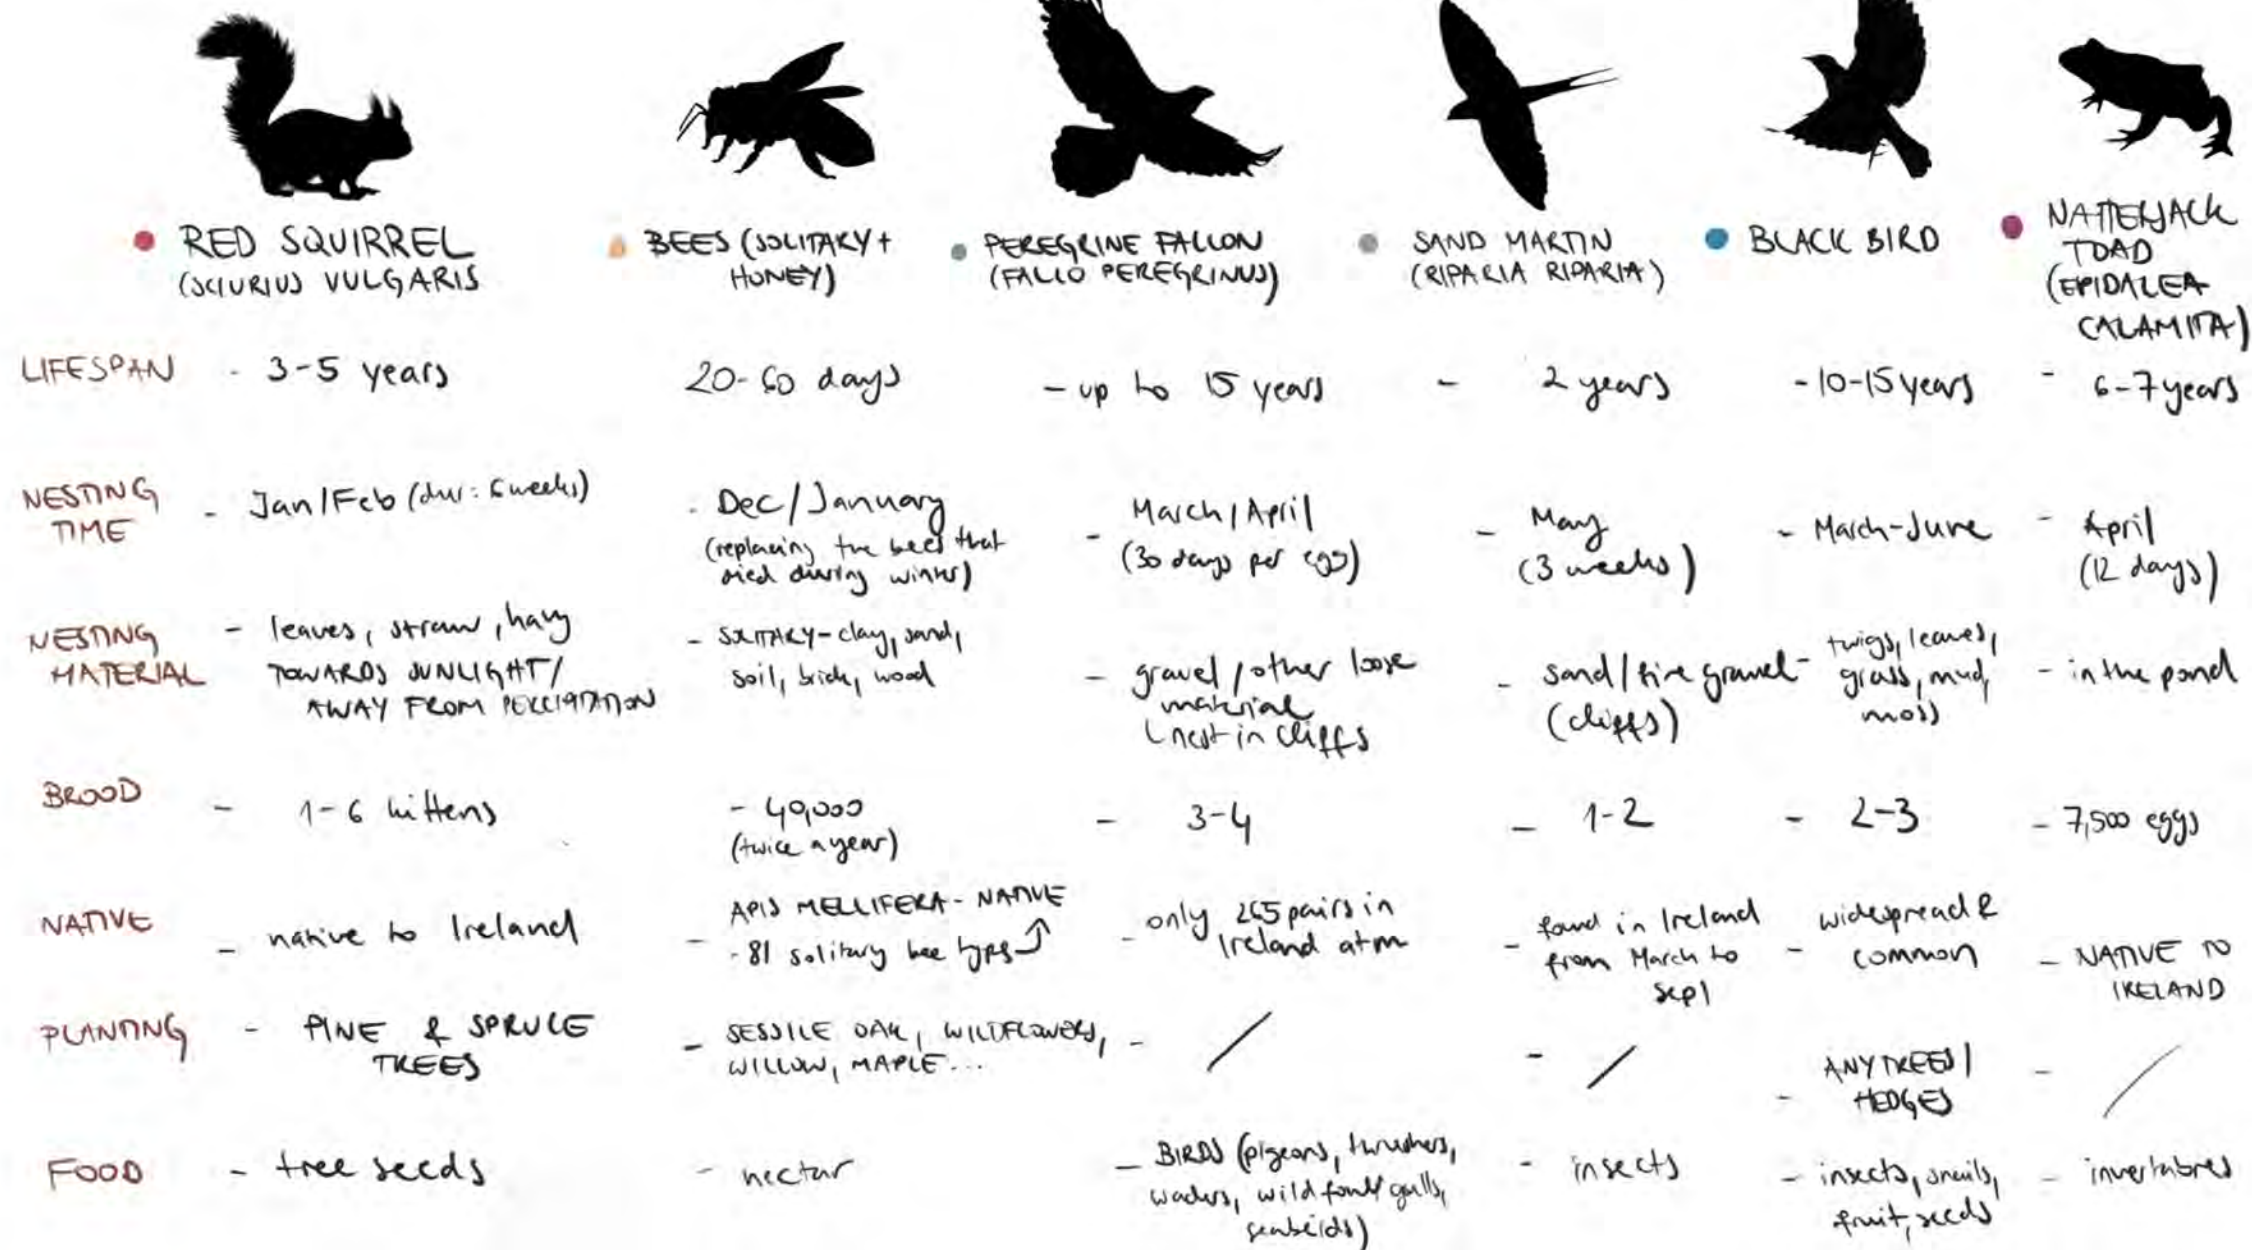 RED SQUIRREL
(SCIURIUS VULGARIS
BEES (SOLITARY +
HONEY)
PEREGRINE FALCON
(FALCO PEREGRINUS)
SAND MARTIN
(RIPARIA RIPARIA)
BLACK BIRD
NATTERJACK
TOAD
(EPIDALEA
CALAMITA)
LIFESPAN
- 3-5 years
20-60 days
- up to 15 years
- 2 years
- 10-15 years
- 6-7 years
NESTING
TIME
- Jan/Feb (dur: 6 weeks)
: Dec/January
(replacing the bees that
died during winter)
- March/April
(30 days per egg)
- May
(3 weeks)
- March-June
- April
(12 days)
NESTING
MATERIAL
- leaves, straw, hay
TOWARDS SUNLIGHT/
AWAY FROM
- SOLITARY - clay, sand,
soil, brick, wood
- gravel / other loose
material
nest in cliffs
- sand/fine gravel
(cliffs)
- twigs, leaves,
grass, mud,
moss
- in the pond
BROOD
- 1-6 kittens
- 40,000
(twice a year)
- 3-4
- 1-2
- 2-3
- 7,500 eggs
NATIVE
- native to Ireland
APIS MELLIFERA - NATIVE
- 81 solitary bee types
- only 265 pairs in
Ireland atm
- found in Ireland
from March to
Sept
- widespread &
common
- NATIVE TO
IRELAND
PLANTING
- PINE & SPRUCE
TREES
- SESSILE OAK, WILDFLOWERS,
WILLOW, MAPLE...
- /
- /
- ANY TREES/
HEDGES
- /
FOOD
- tree seeds
- nectar
- BIRDS (pigeons, thrushes,
waders, wild fowl, gulls,
seabirds)
- insects
- insects, snails,
fruit, seeds
- invertabres